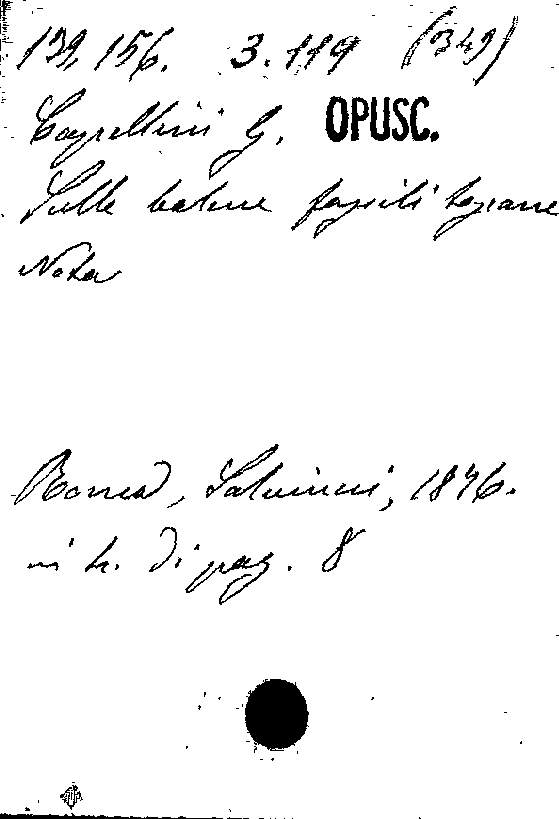 139.156. 3.119 (349)
Capellini G. OPUSC.
Sulle balene fossili toscane
Nota
Roma, Salviucci, 1876.
in 4. di pag. 8